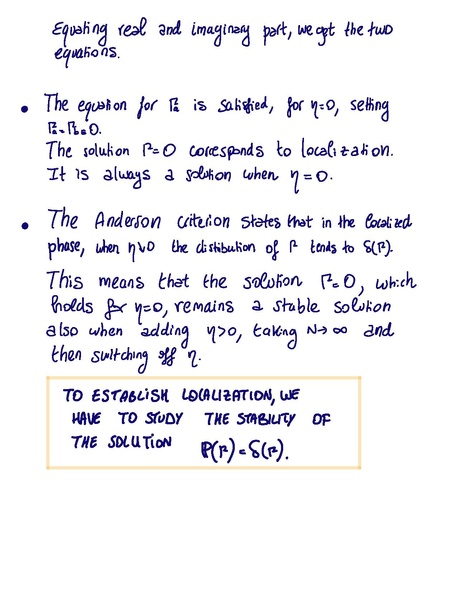 Equating real and imaginary part, we get the two
equations.
• The equation for Γa is satisfied, for η=0, setting
Γa=Γb=0.
The solution Γ=0 corresponds to localization.
It is always a solution when η=0.
• The Anderson criterion states that in the localized
phase, when η↓0 the distribution of Γ tends to δ(Γ).
This means that the solution Γ=0, which
holds for η=0, remains a stable solution
also when adding η>0, taking N→∞ and
then switching off η.
TO ESTABLISH LOCALIZATION, WE
HAVE TO STUDY THE STABILITY OF
THE SOLUTION P(Γ)=δ(Γ).